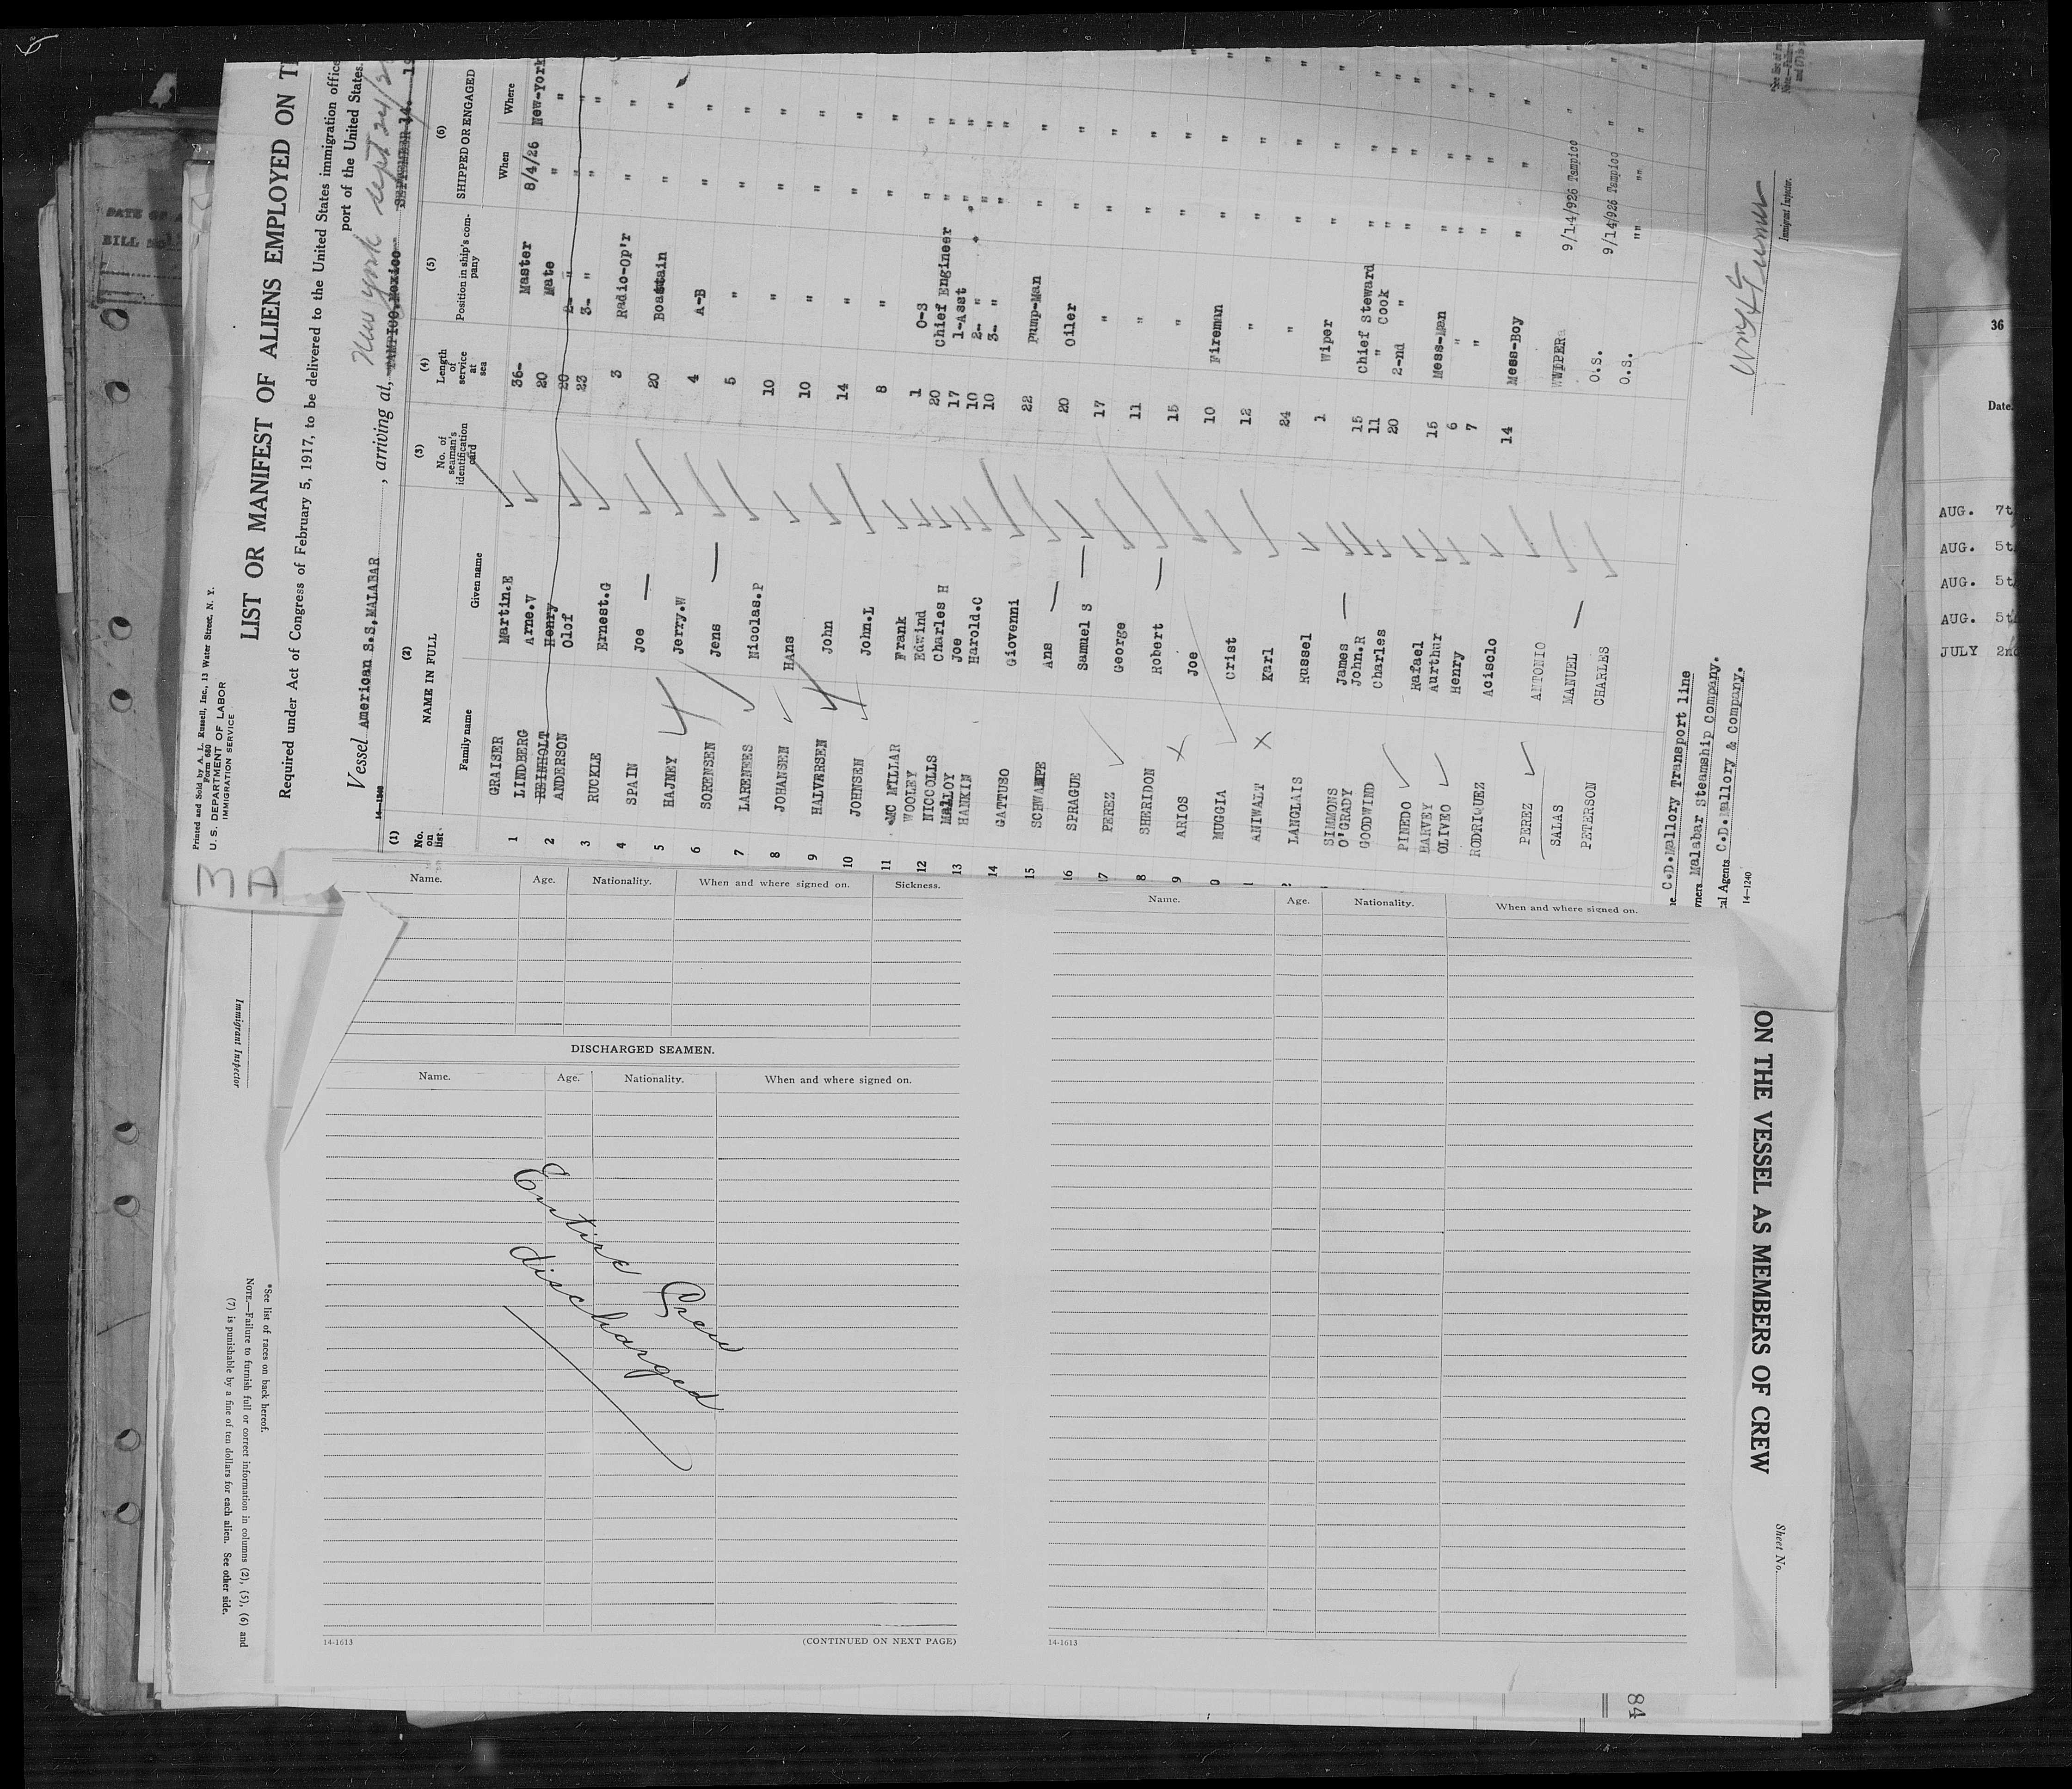 3
A
Printed and Sold by A. L. Russell, Inc., 13 Water Street, N. Y.
Form 680
U. S. DEPARTMENT OF LABOR
IMMIGRATION SERVICE
LIST OR MANIFEST OF ALIENS EMPLOYED ON
Required under Act of Congress of February 5, 1917, to be delivered to the United States immigration
port of the United States.
New York Sept 24/
Vessel American S.S, MALABAR, arriving at, TAMPICO, Mexico SEPTEMBER 14.
14-1240
(1) No. on list
(2) NAME IN FULL
Family name Given name
(3) No. of seaman's identification card
(4) Length of service at sea
(5) Position in ship's company
(6) SHIPPED OR ENGAGED
When Where
GRAISER Martin.E 36- Master 8/4/26 New-York
1 LINDBERG Arne.V 20 Mate " "
REINHOLT Henry 20 2- " " "
2 ANDERSON Olof 23 3- " " "
3 RUCKLE Ernest.G 3 Radio-Op'r " "
4 SPAIN Joe — 20 Boastain " "
5 HAJNEY Jerry.W 4 A-B " "
6 SORENSEN Jens — 5 " " "
7 LARENEES Nicolas.P 10 " " "
8 JOHANSEN HAns 10 " " "
9 HALVERSEN John 14 " " "
10 JOHNSEN John.L 8 " " "
11 MC MILLAR Frank 1 O-S " "
WOOLEY Edwind 20 Chief Engineer " "
12 NICCOLLS Charles H 17 1-Asst " "
MalLOY Joe 10 2- " " "
13 HANKIN Harold.C 10 3- " " "
14 GATTUSO Giovenni 22 Pump-Man " "
15 SCHWAMPE Ans — 20 Oiler " "
16 SPRAGUE Samuel S — 17 " " "
17 PEREZ George 11 " " "
8 SHERIDON Robert — 15 " " "
9 ARIOS Joe 10 Fireman " "
0 MUGGIA Crist 12 " " "
1 ANIWALT Karl 24 " " "
2 LANGLAIS Russel 1 Wiper " "
SIMMONS James — 15 Chief Steward " "
O'GRADY John.R 11 " Cook " "
GOODWIND Charles 20 2-nd " " "
PINEDO Rafael 15 Mess-Man " "
HARVEY Aurthur 6 " " "
OLIVEO Henry 7 " " "
RODRIQUEZ Acisclo 14 Mess-Boy " "
PEREZ ANTONIO WWPPER 9/14/926 Tampico "
SALAS MANUEL — O.S. 9/14/926 Tampico "
PETERSON CHARLES O.S. "" " "
C.D.Mallory Transport line
Malabar Steamship Company.
cal Agents C.D.Mallory & Company.
14-1240
Immigrant Inspector.
*See list of
DATE OF
BILL NO
36
Date.
AUG. 7t
AUG. 5t
AUG. 5t
AUG. 5t
JULY 2nd
Name. Age. Nationality. When and where signed on. Sickness.
DISCHARGED SEAMEN.
Name. Age. Nationality. When and where signed on.
Entire Crew
discharged
14-1613 (CONTINUED ON NEXT PAGE)
Name. Age. Nationality. When and where signed on.
14-1613
Immigrant Inspector
*See list of races on back hereof.
NOTE.—Failure to furnish full or correct information in columns (2), (5), (6) and
(7) is punishable by a fine of ten dollars for each alien. See other side.
ON THE VESSEL AS MEMBERS OF CREW
Sheet No.
84